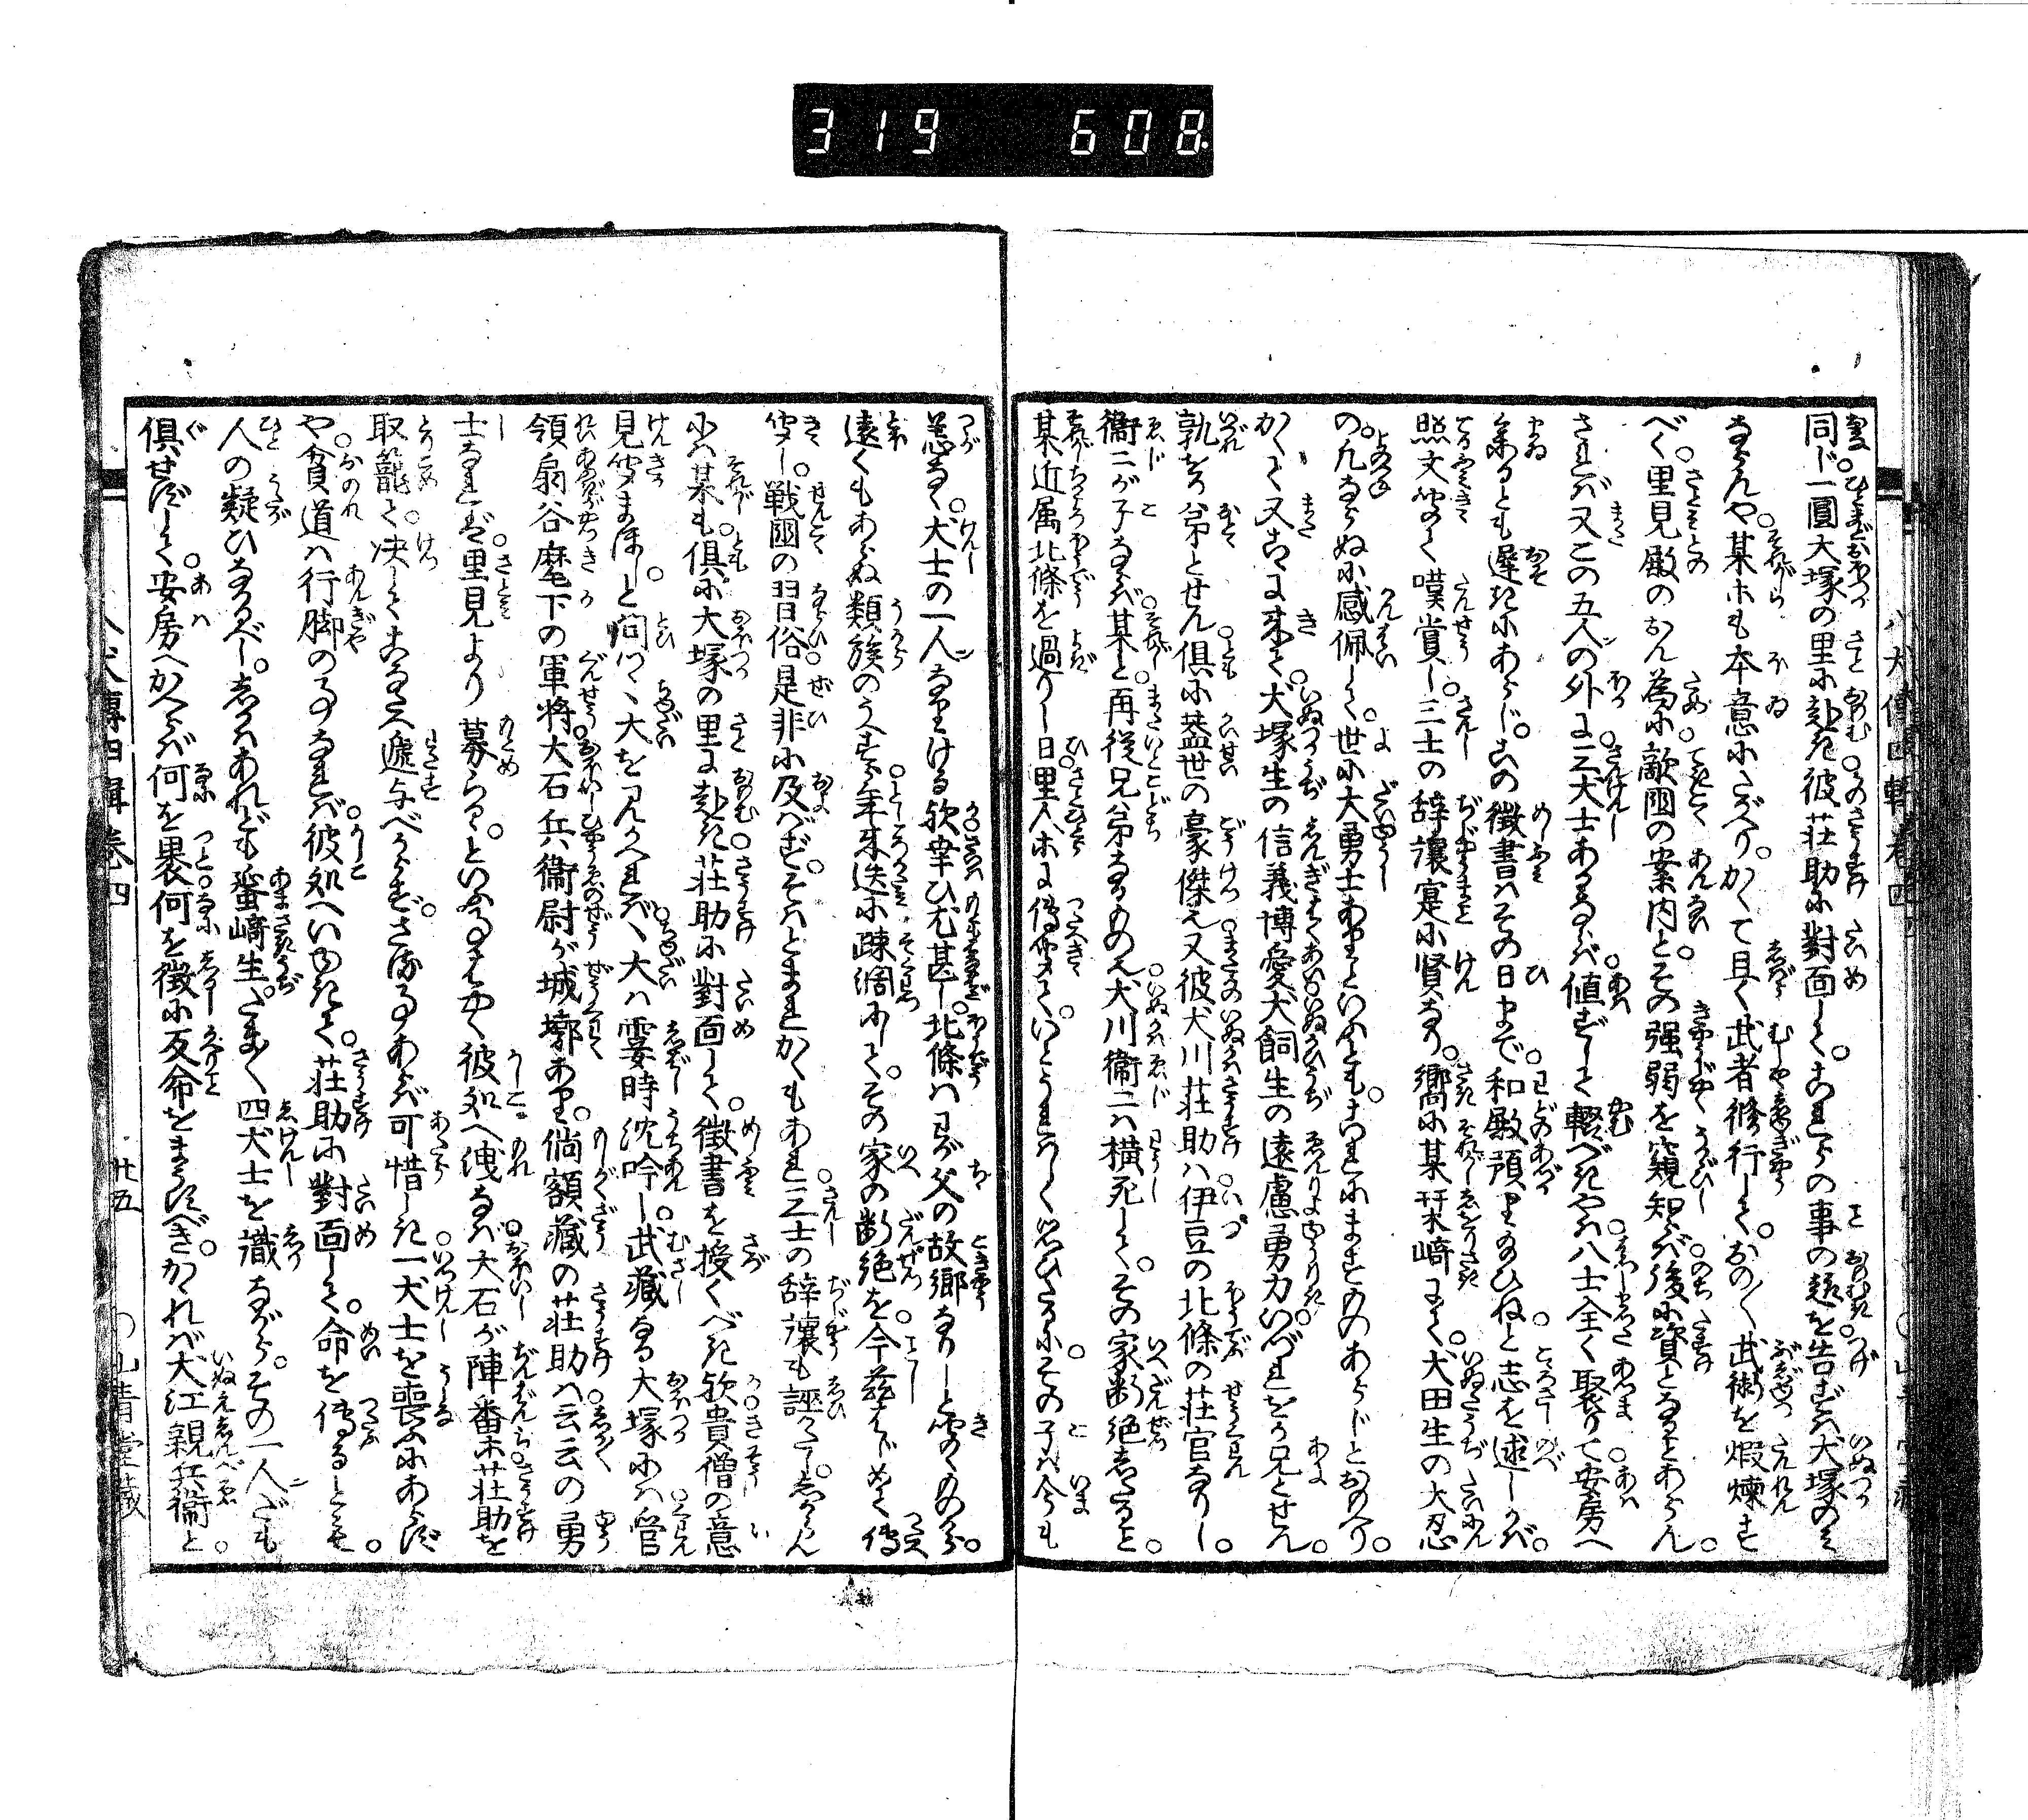 319 608
同じ一圓大塚の里に赴き彼荘助に對面して。これらの事の趣を告ずは犬塚のみ
ならんや。某ホも本意にたがへり。かくて且く武者修行して。おの〳〵武術を煆煉す
べく。里見殿のおん為に敵國の案内と。その強弱を窺知らば。後に資となることあらん。
されば又この五人の外に。三犬士あるならば。値ずして輟べきや。八士全く聚りて。安房へ
参るとも遅きにあらじ。この徴書はその日まで。和殿預り給ひねと志を述しかば。
照文聞て嘆賞し。三士の辞讓寔に賢なり。嚮に某栞﨑にて。犬田生の大忍
の。凡ならぬに感佩して。世に大勇士ありといふとも。これにますものあらじとおもへり。
かくて又こゝに来て。犬塚生の信義博愛犬飼生の遠慮勇力。いづれをか兄とせん。
孰をか弟とせん。倶に蓋世の豪傑也。又彼犬川荘助は。伊豆の北條の荘官なりし。
衞二が子ならば。某と。再従兄弟なるもの也。犬川衞二は横死して。その家断絶したること。
某近属北條を過りし日。里人ホに傳聞て。いとうれはしく思ひたるに。その子は今も
恙なく。犬士の一人なりける歟。幸ひ尤甚し。北條はわが父の故郷なりしと聞くのみなら。
遠くもあらぬ類族のうへすら。年来迭に疎濶にして。その家の断絶を。今茲はじめて傳
聞し。戦國の習俗。是非に及ばず。そはとまれかくもあれ。三士の辞讓も誣かたし。しからん
には某も。倶に大塚の里に赴き。荘助に對面して。徴書を授くべき歟。貴僧の意
見聞まほし。と問へば、大をうかへれば、大は霎時沈吟し。武藏なる大塚には。管
領扇谷麾下の軍將。大石兵衞尉が城郭あり。倘額藏の荘助は。云云の勇
士なれば。里見より募らる。といふよしなく。彼処へ洩なば。大石が陣番ホ。荘助を
取籠て。决してこなたへ遞与べからず。さる事あらば可惜しき。一犬士を喪ふにあらず
や。貧道は行脚の事なれば。彼処へいゆきて。荘助に對面して。命を傳るとも。
人の疑ひなかるべし。しかはあれども蜑﨑生。たま〳〵四犬士を識ながら。その一人だも
倶せずして。安房へかへらば何を褁。何を徴に反命をまうすべき。かゝれば犬江親兵衞と。
八犬傳四輯卷四
廿五
〇山青堂藏